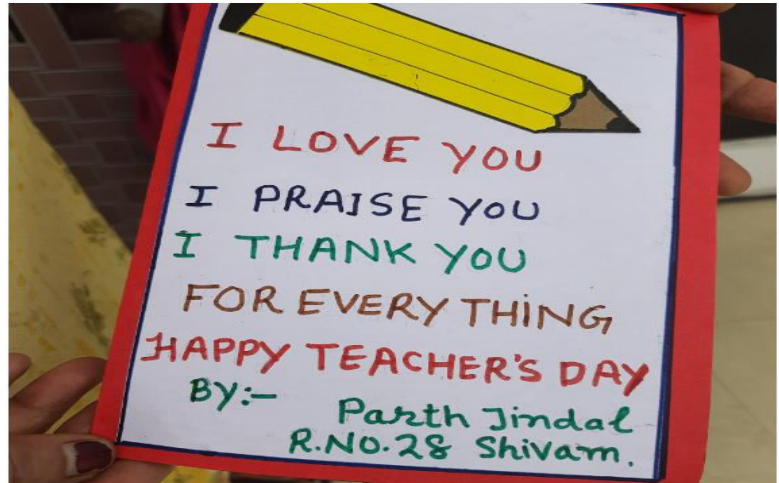 I LOVE YOU
I PRAISE YOU
I THANK YOU
FOR EVERY THING
HAPPY TEACHER'S DAY
BY:-
Parth Jindal
R.NO.28 Shivam.